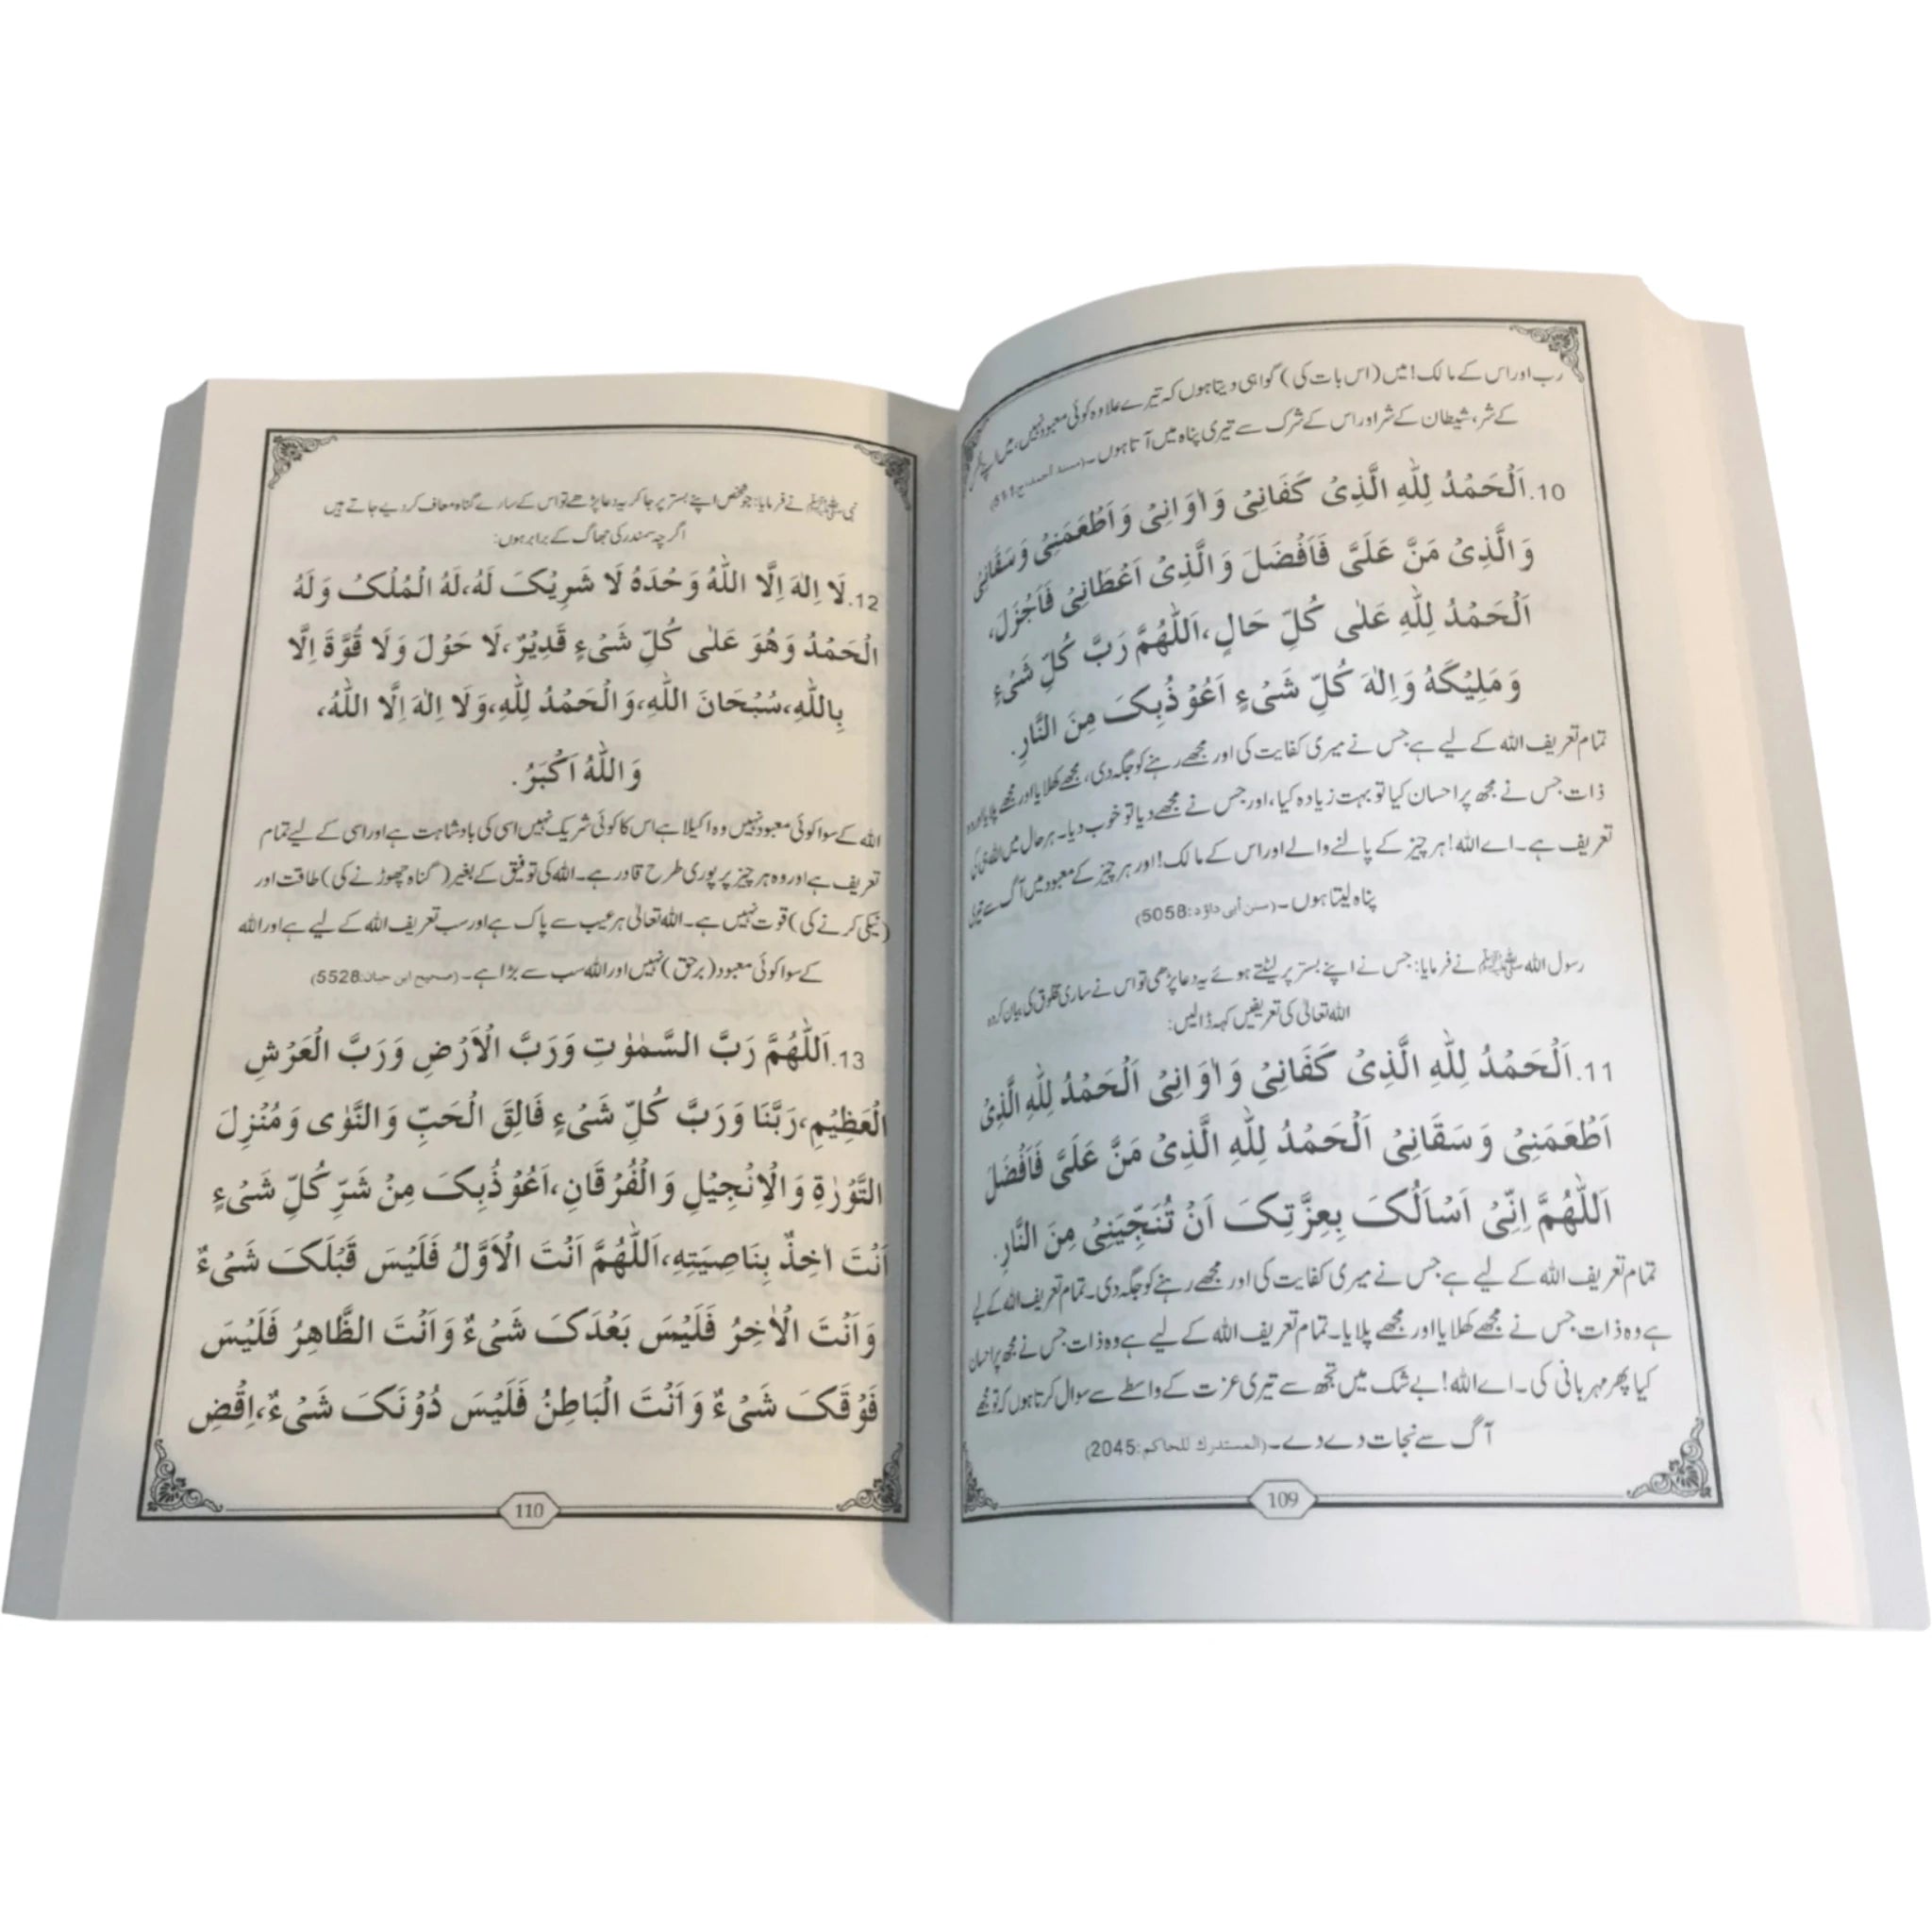 رب اور اس کے مالک! میں (اس بات کی) گواہی دیتا ہوں کہ تیرے علاوہ کوئی معبود نہیں، میں اپنے
کے شر، شیطان کے شر اور اس کے شرک سے تیری پناہ میں آتا ہوں۔ (مسند أحمد، ج511:1)
10. اَلْحَمْدُ لِلّٰهِ الَّذِیْ كَفَانِیْ وَاٰوَانِیْ وَاَطْعَمَنِیْ وَسَقَانِیْ
وَالَّذِیْ مَنَّ عَلَیَّ فَاَفْضَلَ وَالَّذِیْ اَعْطَانِیْ فَاَجْزَلَ،
اَلْحَمْدُ لِلّٰهِ عَلٰی كُلِّ حَالٍ، اَللّٰهُمَّ رَبَّ كُلِّ شَیْءٍ
وَمَلِيْكَهُ وَاِلٰهَ كُلِّ شَیْءٍ اَعُوْذُبِکَ مِنَ النَّارِ.
تمام تعریف اللہ کے لیے ہے جس نے میری کفایت کی اور مجھے رہنے کو جگہ دی، مجھے کھلایا اور مجھے پلایا اور وہ
ذات جس نے مجھ پر احسان کیا تو بہت زیادہ کیا، اور جس نے مجھے دیا تو خوب دیا۔ ہر حال میں اللہ ہی کی
تعریف ہے۔ اے اللہ! ہر چیز کے پالنے والے اور اس کے مالک! اور ہر چیز کے معبود میں آگ سے تیری
پناہ لیتا ہوں۔ (سنن أبی داؤد:5058)
رسول اللہ ﷺ نے فرمایا: جس نے اپنے بستر پر لیٹتے ہوئے یہ دعا پڑھی تو اس نے ساری مخلوق کی بیان کردہ
اللہ تعالیٰ کی تعریفیں کہہ ڈالیں:
11. اَلْحَمْدُ لِلّٰهِ الَّذِیْ كَفَانِیْ وَاٰوَانِیْ اَلْحَمْدُ لِلّٰهِ الَّذِیْ
اَطْعَمَنِیْ وَسَقَانِیْ اَلْحَمْدُ لِلّٰهِ الَّذِیْ مَنَّ عَلَیَّ فَاَفْضَلَ
اَللّٰهُمَّ اِنِّیْ اَسْاَلُکَ بِعِزَّتِکَ اَنْ تُنَجِّيَنِیْ مِنَ النَّارِ.
تمام تعریف اللہ کے لیے ہے جس نے میری کفایت کی اور مجھے رہنے کو جگہ دی۔ تمام تعریف اللہ کے لیے
ہے وہ ذات جس نے مجھے کھلایا اور مجھے پلایا۔ تمام تعریف اللہ کے لیے ہے وہ ذات جس نے مجھ پر احسان
کیا پھر مہربانی کی۔ اے اللہ! بے شک میں تجھ سے تیری عزت کے واسطے سے سوال کرتا ہوں کہ تو مجھے
آگ سے نجات دے دے۔ (المستدرک للحاکم:2045)
109
نبی ﷺ نے فرمایا: جو شخص اپنے بستر پر جا کر یہ دعا پڑھے تو اس کے سارے گناہ معاف کر دیے جاتے ہیں
اگرچہ سمندر کی جھاگ کے برابر ہوں:
12. لَا اِلٰهَ اِلَّا اللّٰهُ وَحْدَهُ لَا شَرِيْکَ لَهُ، لَهُ الْمُلْکُ وَلَهُ
الْحَمْدُ وَهُوَ عَلٰی كُلِّ شَیْءٍ قَدِيْرٌ، لَا حَوْلَ وَلَا قُوَّةَ اِلَّا
بِاللّٰهِ، سُبْحَانَ اللّٰهِ، وَالْحَمْدُ لِلّٰهِ، وَلَا اِلٰهَ اِلَّا اللّٰهُ،
وَاللّٰهُ اَكْبَرُ.
اللہ کے سوا کوئی معبود نہیں وہ اکیلا ہے اس کا کوئی شریک نہیں اسی کی بادشاہت ہے اور اسی کے لیے تمام
تعریف ہے اور وہ ہر چیز پر پوری طرح قادر ہے۔ اللہ کی توفیق کے بغیر (گناہ چھوڑنے کی) طاقت اور
(نیکی کرنے کی) قوت نہیں ہے۔ اللہ تعالیٰ ہر عیب سے پاک ہے اور سب تعریف اللہ کے لیے ہے اور اللہ
کے سوا کوئی معبود (برحق) نہیں اور اللہ سب سے بڑا ہے۔ (صحیح ابن حبان:5528)
13. اَللّٰهُمَّ رَبَّ السَّمٰوٰتِ وَرَبَّ الْاَرْضِ وَرَبَّ الْعَرْشِ
الْعَظِيْمِ، رَبَّنَا وَرَبَّ كُلِّ شَیْءٍ فَالِقَ الْحَبِّ وَالنَّوٰی وَمُنْزِلَ
التَّوْرٰةِ وَالْاِنْجِيْلِ وَالْفُرْقَانِ، اَعُوْذُبِکَ مِنْ شَرِّ كُلِّ شَیْءٍ
اَنْتَ اٰخِذٌ بِنَاصِيَتِهِ، اَللّٰهُمَّ اَنْتَ الْاَوَّلُ فَلَيْسَ قَبْلَکَ شَیْءٌ
وَاَنْتَ الْاٰخِرُ فَلَيْسَ بَعْدَکَ شَیْءٌ وَاَنْتَ الظَّاهِرُ فَلَيْسَ
فَوْقَکَ شَیْءٌ وَاَنْتَ الْبَاطِنُ فَلَيْسَ دُوْنَکَ شَیْءٌ، اِقْضِ
110